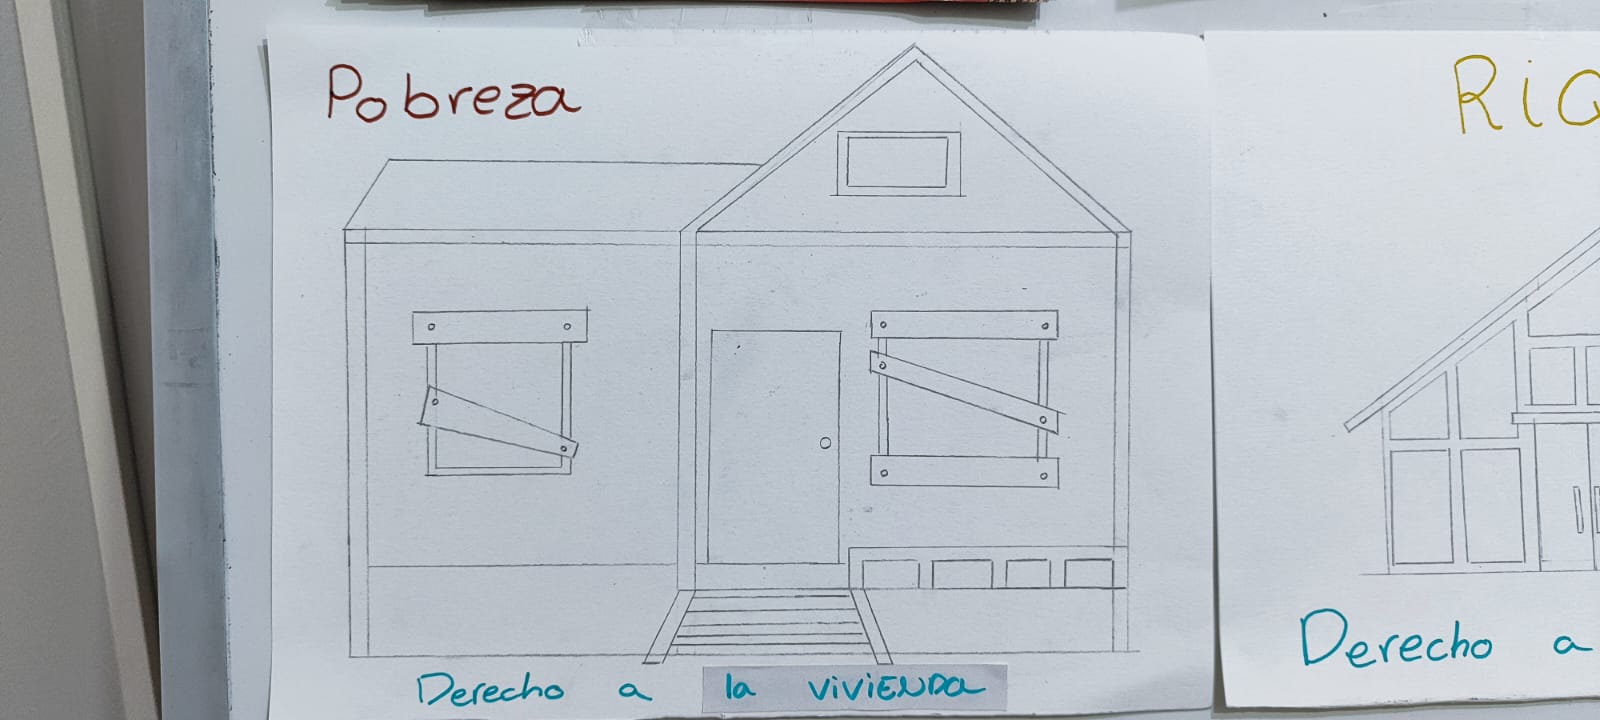 Pobreza
Derecho a la VIVIENDA
RIQ
Derecho a